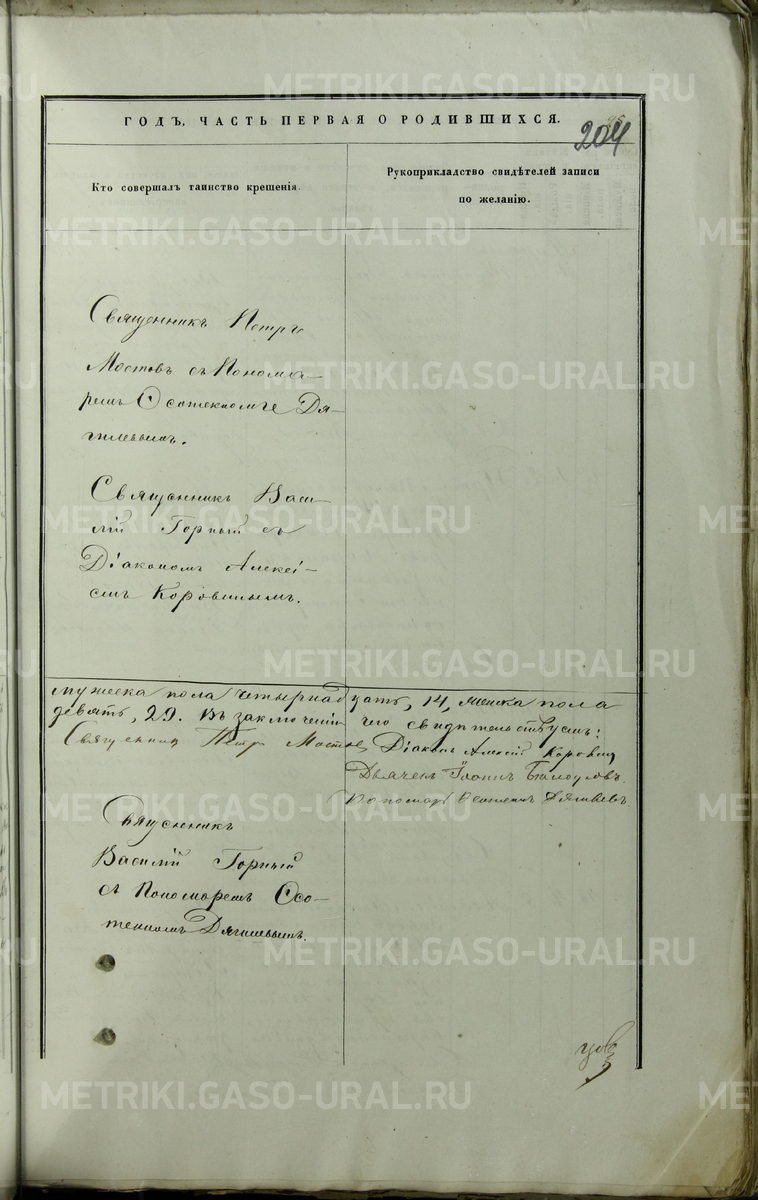 ГОДЪ, ЧАСТЬ ПЕРВАЯ О РОДИВШИХСЯ.
204
Кто совершалъ таинство крещенія.
Рукоприкладство свидѣтелей записи
по желанію.
Священникъ Петръ
Мостовъ съ Понома-
ремъ Ѳеотекномъ Дя-
гилевымъ.
Священникъ Васи-
лій Горный съ
Діакономъ Алексі-
емъ Коровинымъ.
мужеска пола четырнадцать, 14, женска пола
девять, 29. Въ заключеніи чего свидѣтельствуемъ:
Священникъ Петръ Мостовъ Діаконъ Алексій Коровинъ
Дьячекъ Іоаннъ
Пономарь Ѳеотекнъ Дягилевъ
Священникъ
Василій Горный
съ Пономаремъ Ѳео-
текномъ Дягилевымъ.
METRIKI.GASO-URAL.RU